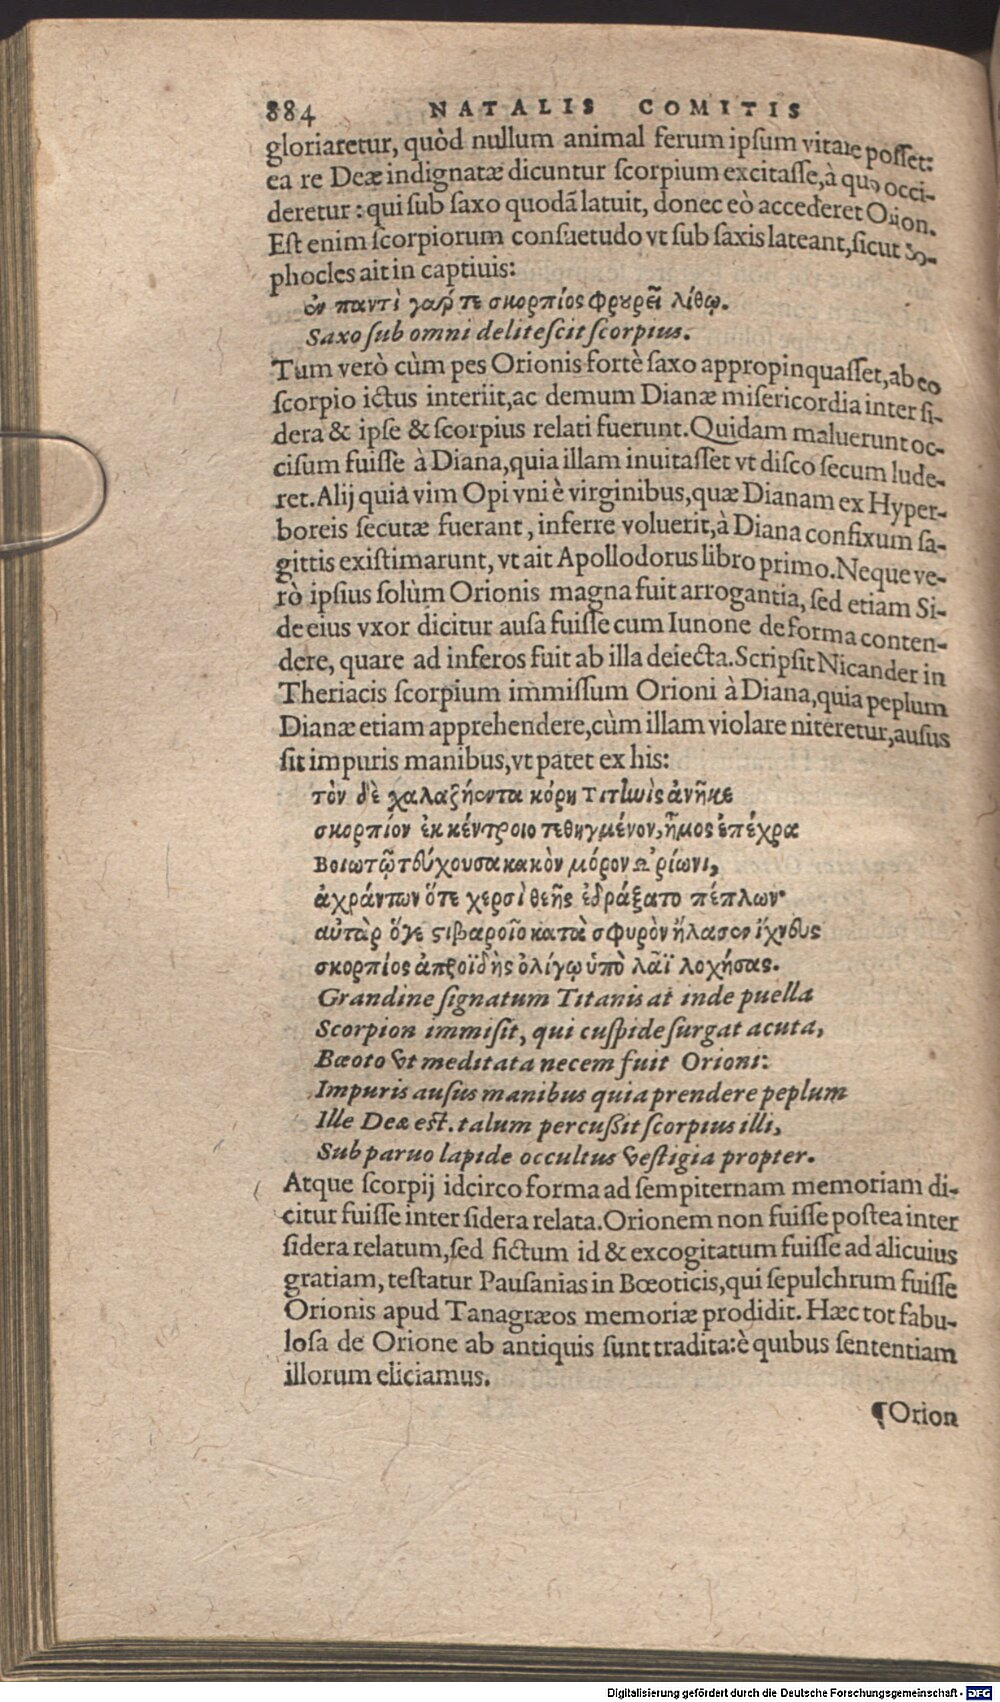 884 NATALIS COMITIS
gloriaretur, quòd nullum animal ferum ipſum vitare poſſet:
ea re Deæ indignatæ dicuntur ſcorpium excitaſſe, à quo occi-
deretur: qui ſub ſaxo quodã latuit, donec eò accederet Orion.
Eſt enim ſcorpiorum conſuetudo vt ſub ſaxis lateant, ſicut So-
phocles ait in captiuis:
ἐν παντὶ γάρ τε σκορπίος φρουρεῖ λίθῳ.
Saxo ſub omni deliteſcit ſcorpius.
Tum verò cùm pes Orionis fortè ſaxo appropinquaſſet, ab eo
ſcorpio ictus interiit, ac demum Dianæ miſericordia inter ſi-
dera & ipſe & ſcorpius relati fuerunt. Quidam maluerunt oc-
ciſum fuiſſe à Diana, quia illam inuitaſſet vt diſco ſecum lude-
ret. Alij quià vim Opi vni è virginibus, quæ Dianam ex Hyper-
boreis ſecutæ fuerant, inferre voluerit, à Diana confixum ſa-
gittis exiſtimarunt, vt ait Apollodorus libro primo. Neque ve-
rò ipſius ſolùm Orionis magna fuit arrogantia, ſed etiam Si-
de eius vxor dicitur auſa fuiſſe cum Iunone de forma conten-
dere, quare ad inferos fuit ab illa deiecta. Scripſit Nicander in
Theriacis ſcorpium immiſſum Orioni à Diana, quia peplum
Dianæ etiam apprehendere, cùm illam violare niteretur, auſus
ſit impuris manibus, vt patet ex his:
τὸν δὲ χαλαζήεντα κόρη Τιτηνὶς ἀνῆκε
σκορπίον ἐκ κέντροιο τεθηγμένον, ἦμος ἐπέχρα
Βοιωτῷ τεύχουσα κακὸν μόρον Ὠρίωνι,
ἀχράντων ὅτε χερσὶ θεῆς ἐδράξατο πέπλων·
αὐτὰρ ὅγε στιβαροῖο κατὰ σφυρὸν ἤλασεν ἴχνους
σκορπίος ἀπροϊδὴς ὀλίγῳ ὑπὸ λᾶϊ λοχήσας.
Grandine ſignatum Titanis at inde puella
Scorpion immiſit, qui cuſpide ſurgat acuta,
Bœoto vt meditata necem fuit Orioni:
Impuris auſus manibus quia prendere peplum
Ille Deæ eſt. talum percußit ſcorpius illi,
Sub paruo lapide occultus veſtigia propter.
Atque ſcorpij idcirco forma ad ſempiternam memoriam di-
citur fuiſſe inter ſidera relata. Orionem non fuiſſe poſtea inter
ſidera relatum, ſed fictum id & excogitatum fuiſſe ad alicuius
gratiam, teſtatur Pauſanias in Bœoticis, qui ſepulchrum fuiſſe
Orionis apud Tanagræos memoriæ prodidit. Hæc tot fabu-
loſa de Orione ab antiquis ſunt tradita: è quibus ſententiam
illorum eliciamus.
¶Orion
Digitalisierung gefördert durch die Deutsche Forschungsgemeinschaft - DFG